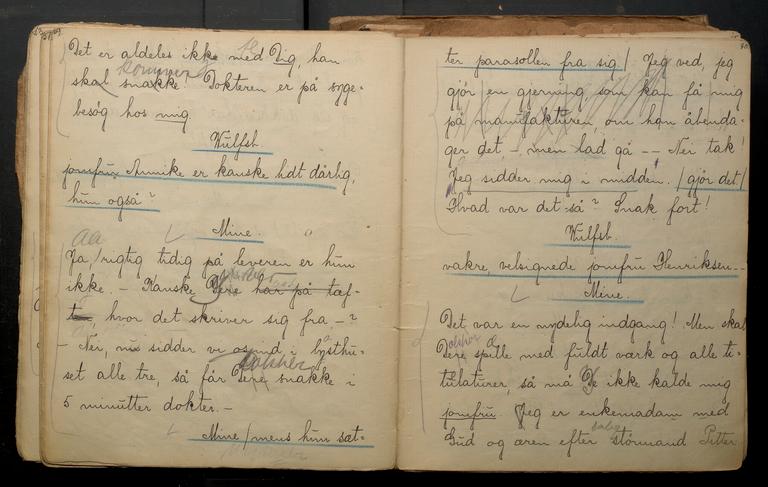 Det er aldeles ikke med Dig, han
skal snakke! Dokteren er på syge-
besøg hos mig.
Wulfsb.
jomfru Annike er kanske lidt dårlig,
hun også?
Mine.
Ja, rigtig tidig på leveren er hun
ikke. – Kanske Dere har på tæf-
t , hvor det skriver sig fra, – ?
– Nei, nu sidder vi osund i lysthu-
set alle tre, så får Dere snakke i
5 minutter dokter. –
Mine /mens hun sæt-
ter parasollen fra sig/ Jeg ved, jeg
gjør en gjerning, som kan få mig
på manufakturen, om han åbenda-
ger det –, men lad gå – – Nei tak!
Jeg sidder mig i midden. /gjør det/
Hvad var det så? Snak fort!
Wulfsb.
vakre, velsignede jomfru Henriksen – –
Mine.
Det var en nydelig indgang! Men skal
Dere spille med fuldt værk og alle ti-
tulaturer, så må De ikke kalde mig
jomfru. Jeg er enkemadam med
Gud og æren efter salig størmand Petter